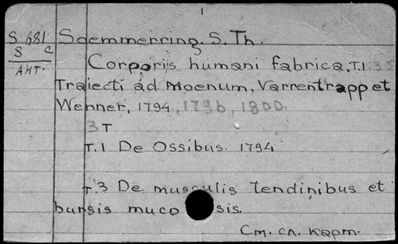 S 681 Soemmerring, S. Th.
S c
АНТ.
Corporis humani fabrica, T.1 3 5
Traiecti ad Moenum, Varrentrapp et
Wenner, 1794, 1796, 1800.
3 T
T.1 De Ossibus. 1794
T.3 De musculis Tendinibus et
bursis muco sis.
См. сл. карт.